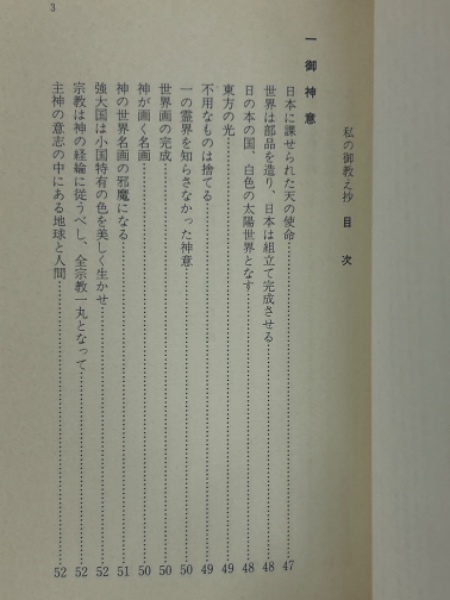 私の御教え抄 目次
一 御神意
日本に課せられた天の使命……47
世界は部品を造り、日本は組立て完成させる……48
日の本の国、白色の太陽世界となす……48
東方の光……49
不用なものは捨てる……49
一の霊界を知らさなかった神意……50
世界画の完成……50
神が画く名画……50
神の世界名画の邪魔になる……51
強大国は小国特有の色を美しく生かせ……52
宗教は神の経綸に従うべし、全宗教一丸となって……52
主神の意志の中にある地球と人間……52
3